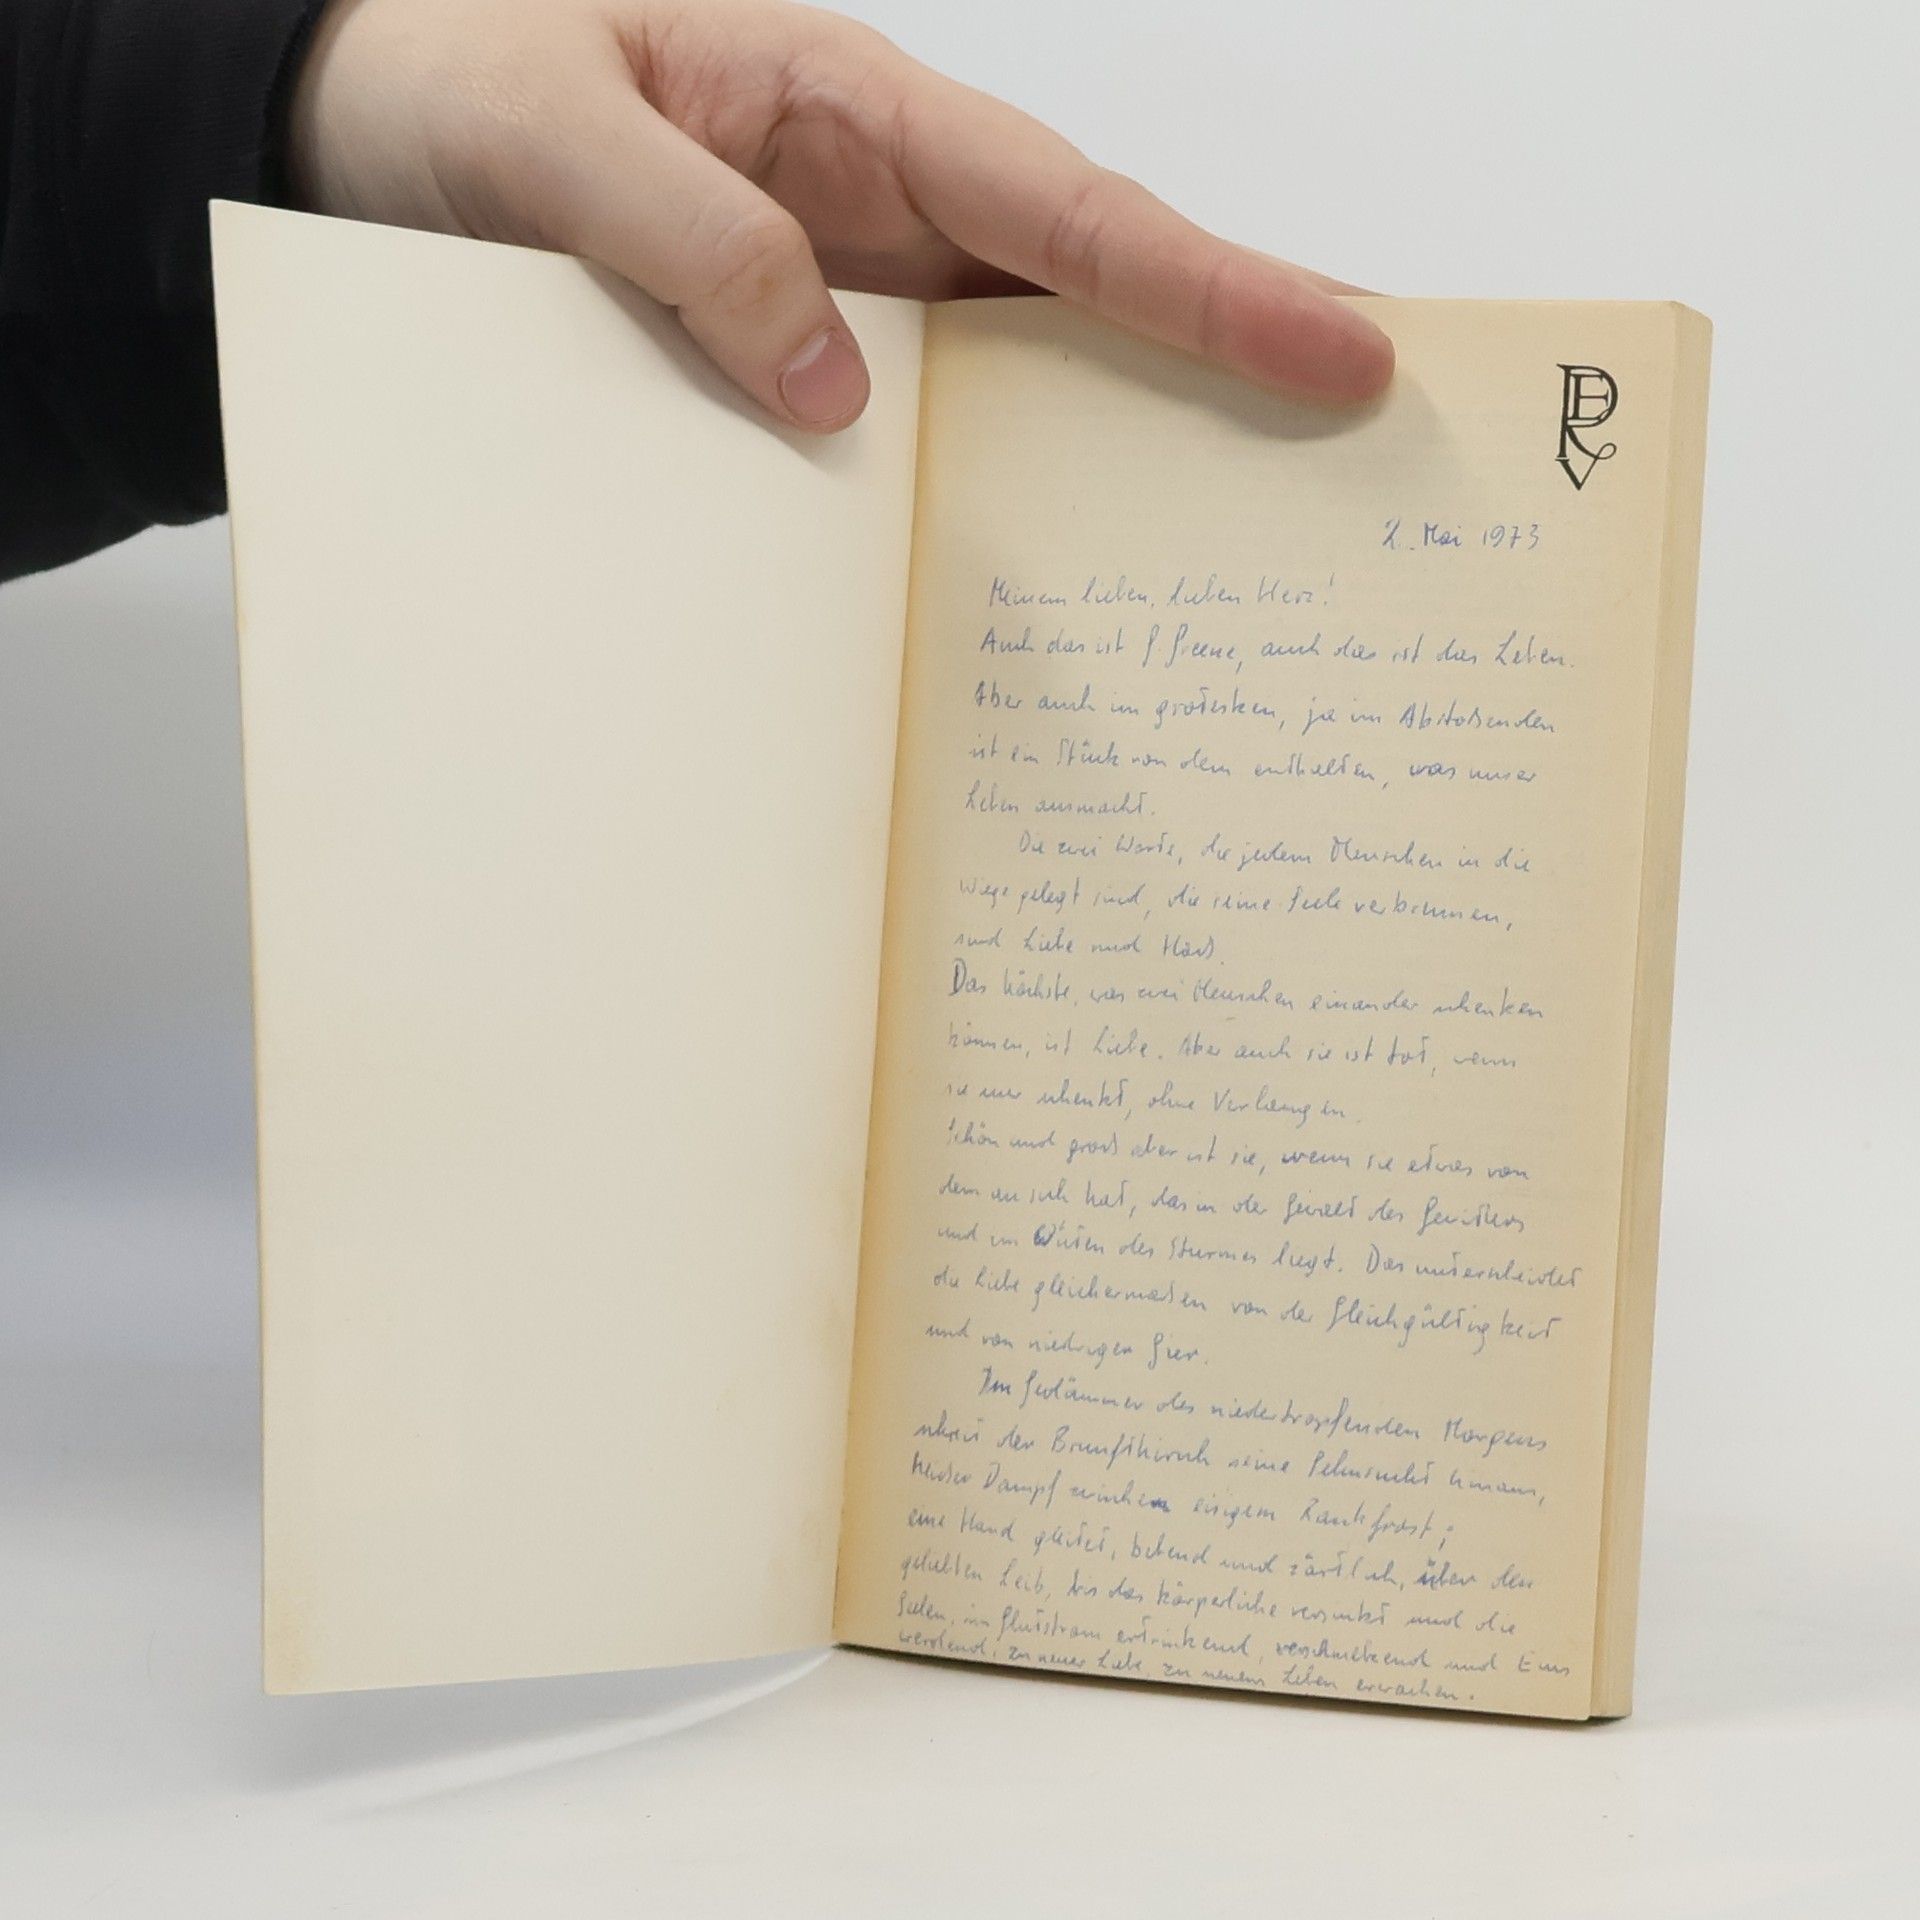 PERV
2. Mai 1973
Meinem lieben, lieben Herz!
Auch das ist G. Greene, auch das ist das Leben.
Aber auch im grotesken, ja im Abstoßenden
ist ein Stück von dem enthalten, was unser
Leben ausmacht.
Die zwei Worte, die jedem Menschen in die
Wiege gelegt sind, die seine Seele verbrennen,
sind Liebe und Haß.
Das höchste, was zwei Menschen einander schenken
können, ist Liebe. Aber auch sie ist tot, wenn
sie nur schenkt, ohne Verlangen.
Schön und groß aber ist sie, wenn sie etwas von
dem an sich hat, das in der Gewalt des Gewitters
und im Wüten des Sturmes liegt. Das unterscheidet
die Liebe gleichermaßen von der Gleichgültigkeit
und von niedriger Gier.
Im Gedämmer des niedertropfenden Morgens
schreit der Brunfthirsch seine Sehnsucht hinaus,
heißer Dampf zwischen eisigem Rauhfrost;
eine Hand gleitet, bebend und zärtlich, über den
geliebten Leib, bis das körperliche versinkt und die
Seelen, im Glutstrom ertrinkend, verschmelzend und Eins
werdend, zu neuer Liebe, zu neuem Leben erwachen.